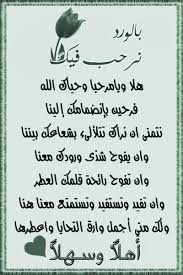 بالورد
نرحب فيك
هلا ويامرحبا وحياك الله
فرحين بإنضمامك إلينا
نتمنى ان نراك تتلألىء بشعاعك بيننا
وان يفوح شذى ورودك معنا
وان تفوح رائحة قلمك العطر
وان تفيد وتستفيد وتستمتع معنا هنا
ولك منى أجمل وارق التحايا واعطرها
أهلاً وسهلاً